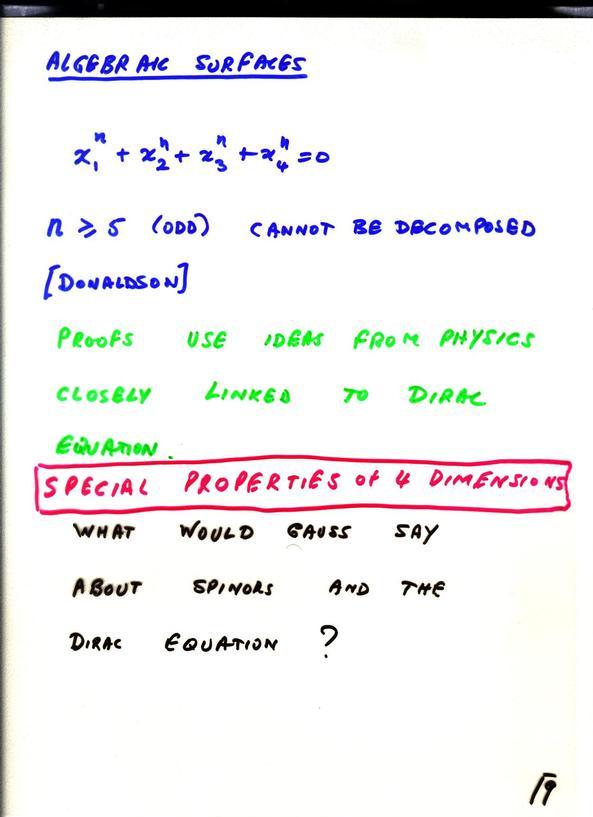 ALGEBRAIC SURFACES
x₁ⁿ + x₂ⁿ + x₃ⁿ + x₄ⁿ = 0
n ≥ 5 (ODD) CANNOT BE DECOMPOSED
[DONALDSON]
PROOFS USE IDEAS FROM PHYSICS
CLOSELY LINKED TO DIRAC
EQUATION.
SPECIAL PROPERTIES OF 4 DIMENSIONS
WHAT WOULD GAUSS SAY
ABOUT SPINORS AND THE
DIRAC EQUATION ?
19